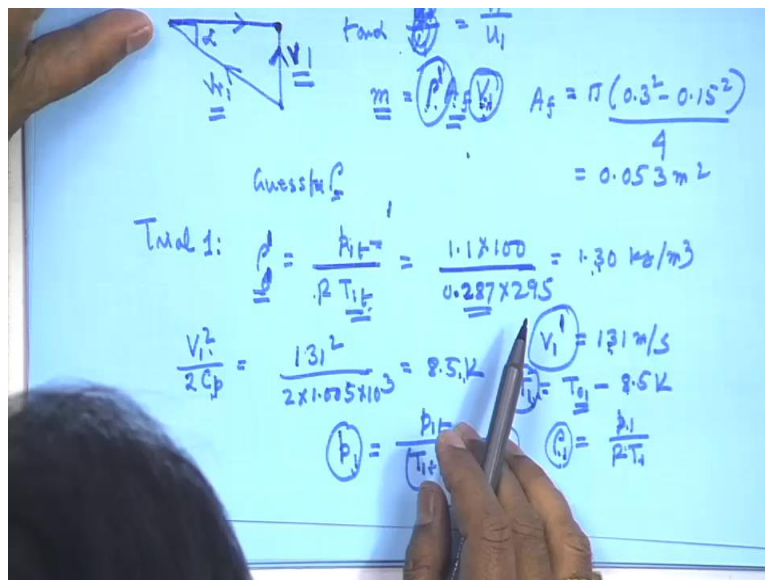 α V₁ tanα = V₁ / U₁
Vr₁
m = ρ' A_f V₁ A_f = π (0.3² - 0.15²) / 4
= 0.053 m²
Guess for ρ
Trial 1: ρ' = p₁t / R T₁t = 1.1×100 / 0.287×295 = 1.30 kg/m3
V₁' = 131 m/s
V₁² / 2Cp = 131² / 2×1.005×10³ = 8.5 K T₁ = T₀₁ - 8.5K
p₁ = p₁t / (T₁t ρ₁ = p₁ / R T₁